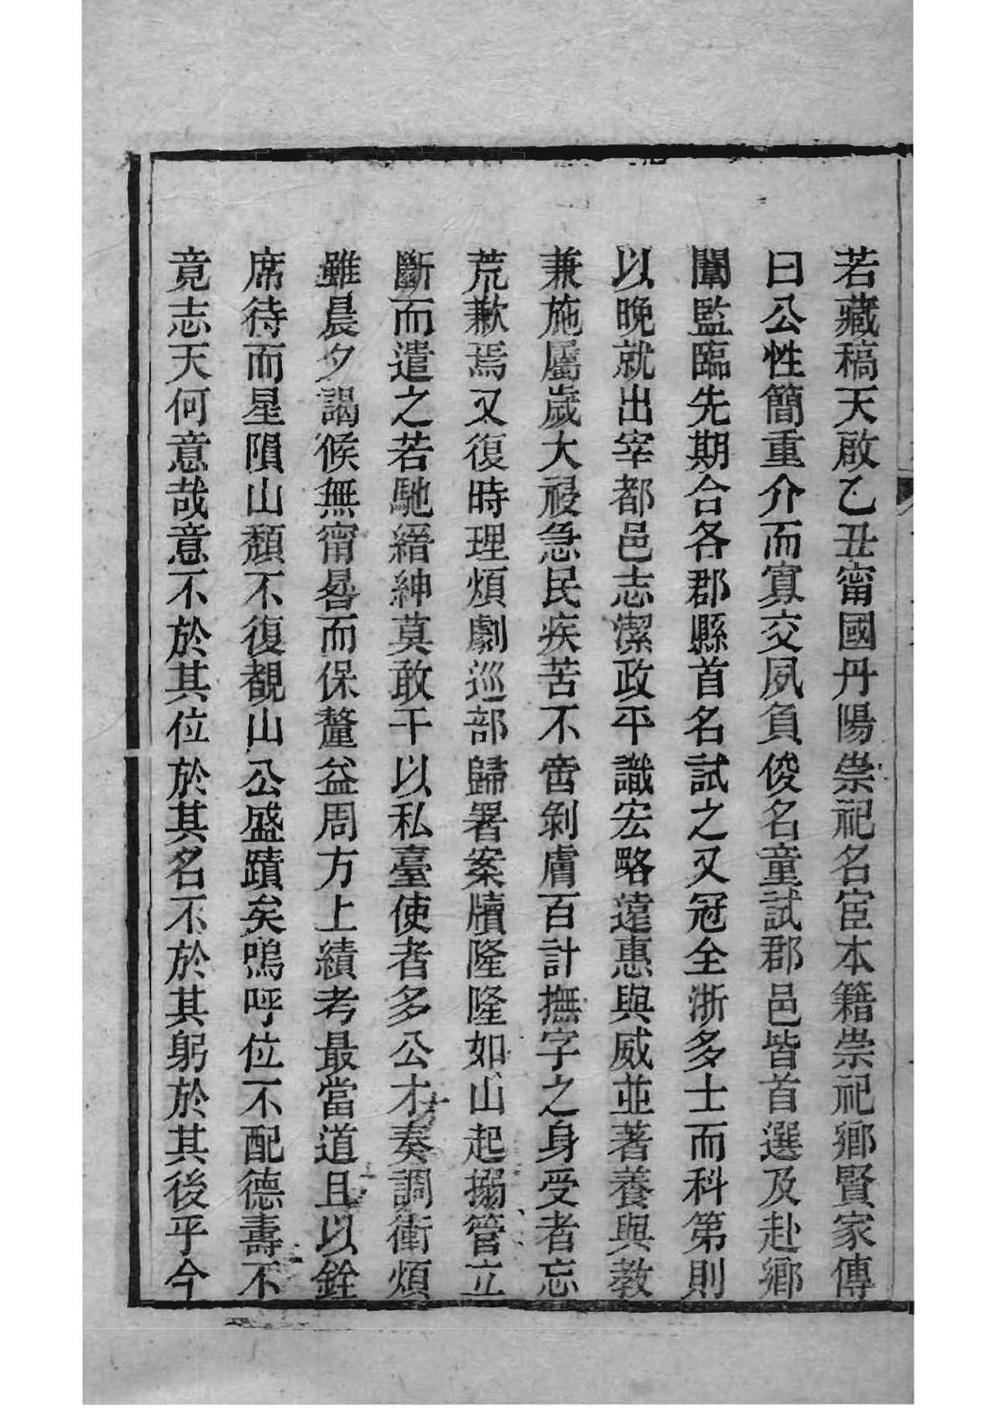 若藏稿天啟乙丑甯國丹陽崇祀名宦本籍崇祀鄉賢家傳
曰公性簡重介而寡交夙負俊名童試郡邑皆首選及赴鄉
闈監臨先期合各郡縣首名試之又冠全浙多士而科第則
以晚就出宰都邑志潔政平識宏略遠惠與威並著養與教
兼施屬歲大祲急民疾苦不啻剝膚百計撫字之身受者忘
荒歉焉又復時理煩劇巡部歸署案牘隆隆如山起搦管立
斷而遣之若馳縉紳莫敢干以私臺使者多公才奏調衝煩
雖晨夕謁候無甯晷而保釐益周方上績考最當道且以銓
席待而星隕山頹不復覩山公盛蹟矣嗚呼位不配德壽不
竟志天何意哉意不於其位於其名不於其躬於其後乎今